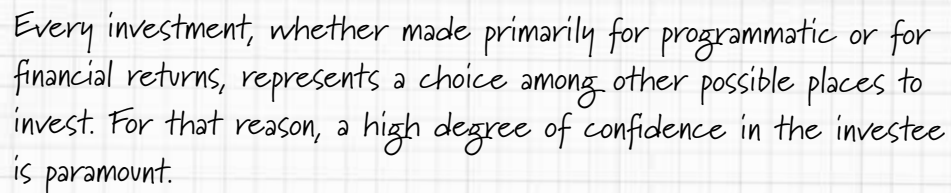 Every investment, whether made primarily for programmatic or for
financial returns, represents a choice among other possible places to
invest. For that reason, a high degree of confidence in the investee
is paramount.